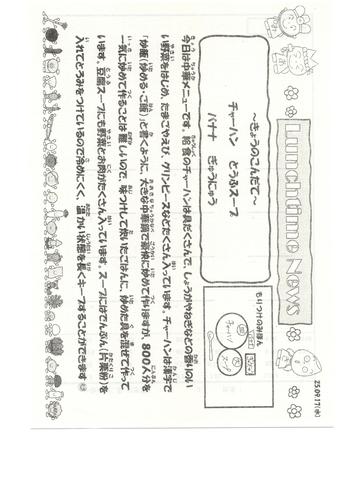 25.09.17(水)
Lunchtime News
～きょうのこんだて～
チャーハン　とうふスープ
バナナ　ぎゅうにゅう
もりつけのみほん
今日は中華メニューです。給食のチャーハンは具だくさんで、しょうがやねぎなどの香りのい
い野菜をはじめ、たまごやえび、グリンピースなどたくさん入っています。チャーハンは漢字で
「炒飯(炒める・ご飯)」と書くように、大きな中華鍋で豪快に炒めて作りますが、800人分を
一気に炒めて作ることは難しいので、味つけして炊いたごはんに、炒めた具を混ぜて作って
います。豆腐スープにも野菜とお肉がたくさん入っています。スープにはでんぷん(片栗粉)を
入れてとろみをつけているので冷めにくく、温かい状態を長くキープすることができます